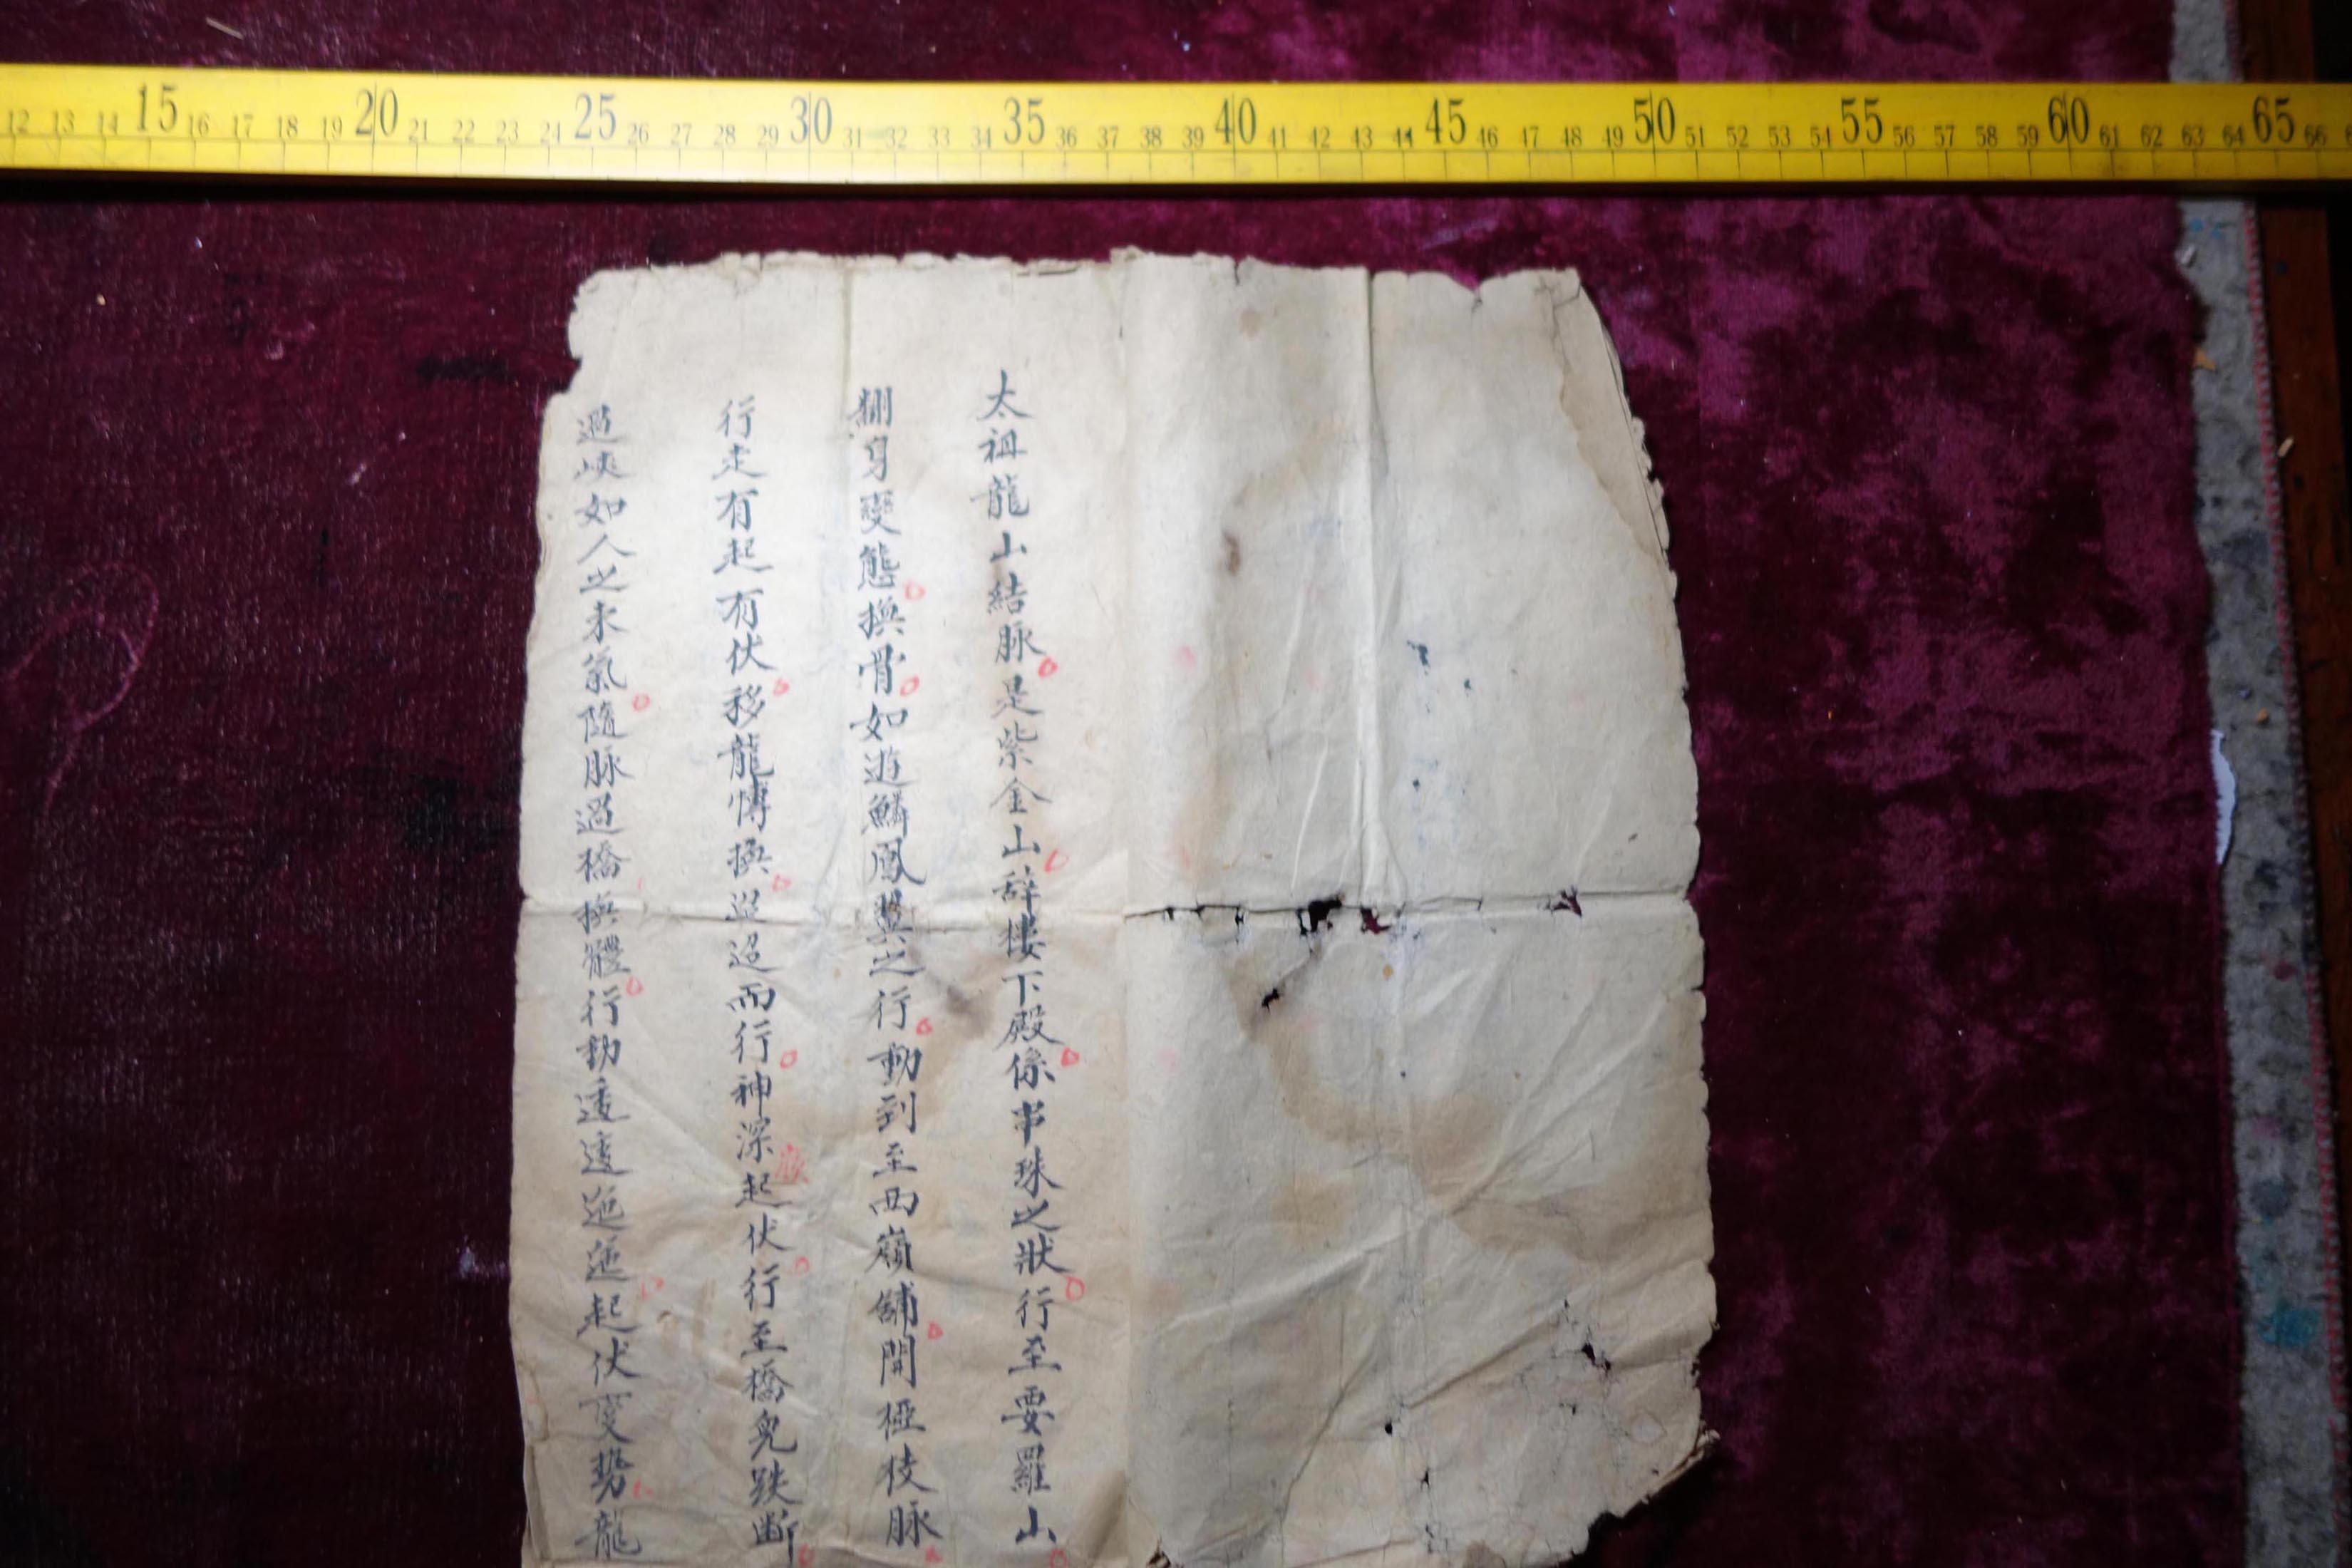 12 13 14 15 16 17 18 19 20 21 22 23 24 25 26 27 28 29 30 31 32 33 34 35 36 37 38 39 40 41 42 43 44 45 46 47 48 49 50 51 52 53 54 55 56 57 58 59 60 61 62 63 64 65 66
太祖龍山結脉是紫金山辞樓下殿係串珠之狀行至要羅山
翻身變態換骨如遊鱗鳳翼之行動到至西嶺舖開極枝脉
行走有起有伏移龍愽換迢迢而行神深起伏行至橋凳跌断
過峽如人之未氣隨脉過橋換體行動逶逶迤迤起伏变勢龍